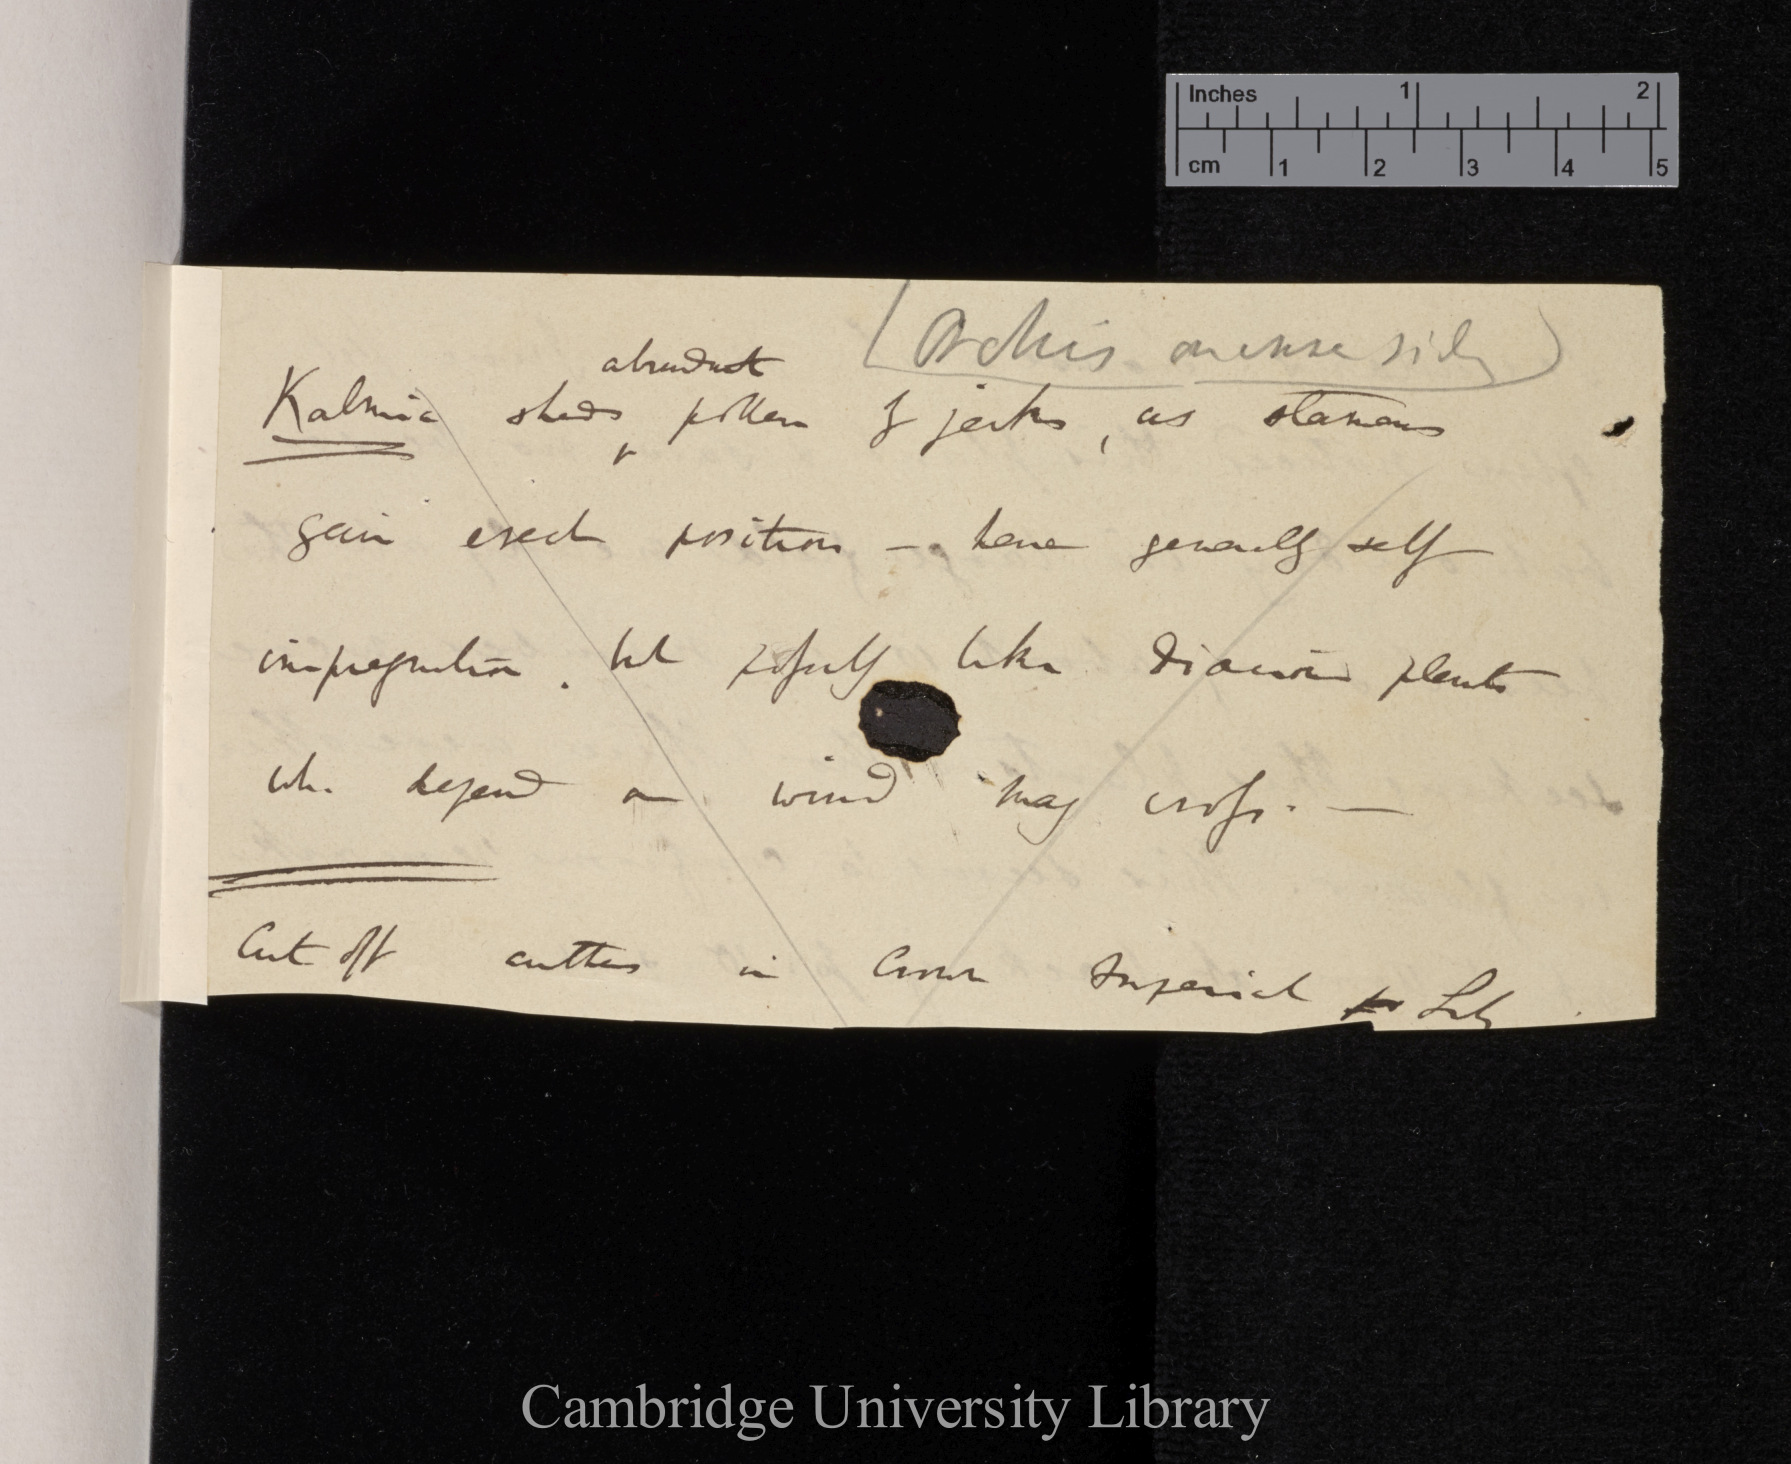 Inches 1 2
cm 1 2 3 4 5
(Orchis on other side)
abundant
Kalmia sheds pollen by jerks, as stamens
gain erect position — hence generally self
impregnation. but possibly like dioecious plants
wh. depend on wind may cross. —
Cut off anthers in Crown Imperial
Cambridge University Library